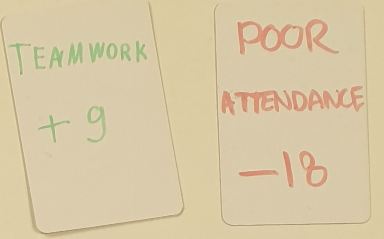 TEAMWORK
+9
POOR
ATTENDANCE
-18